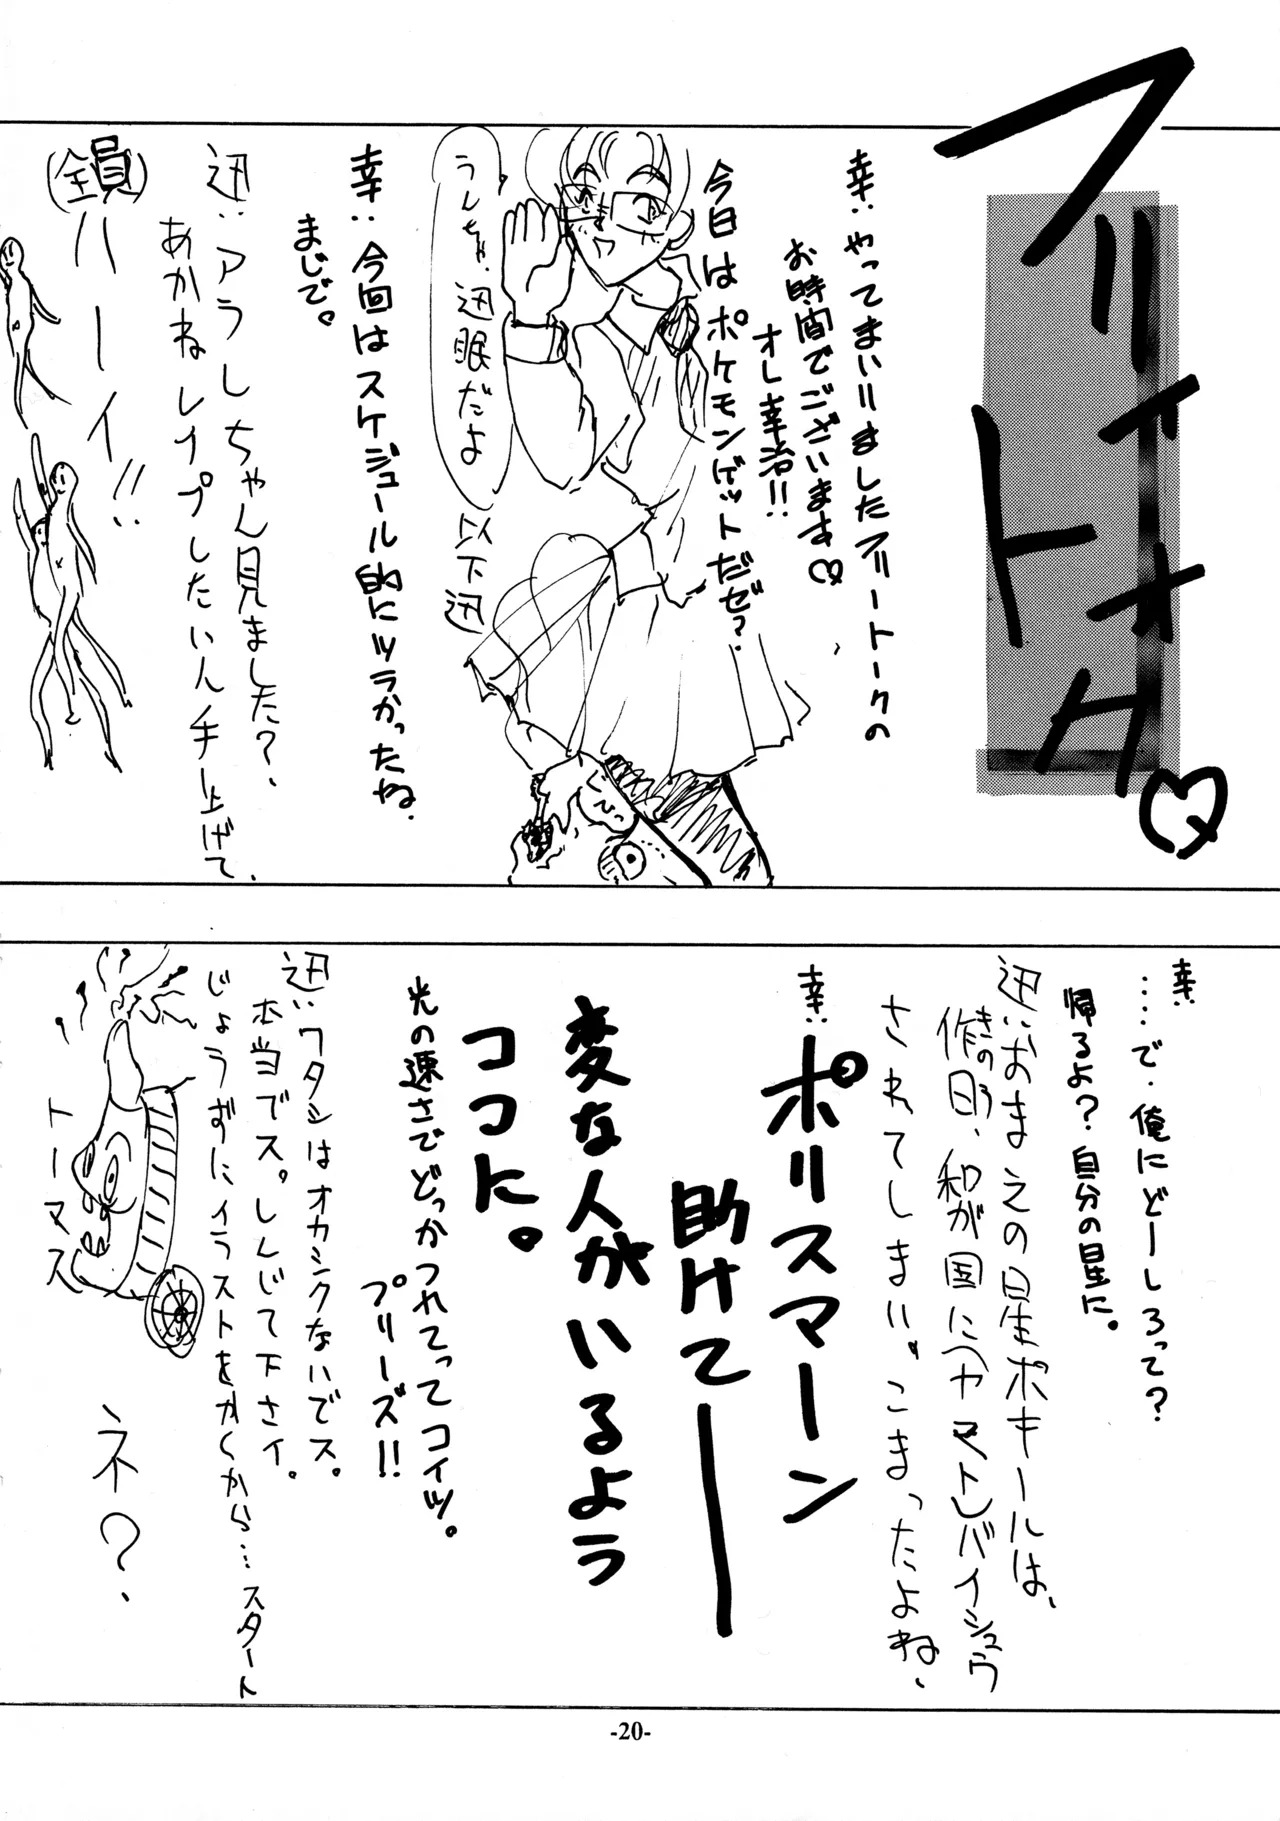 フリィ
トォク♡
幸:やってまいりましたフリートークの
お時間でございます♡
オレ幸治!!
今日はポケモンゲットだぜ?
うんちゃ、迅眠だよ
以下迅
幸:今回はスケジュール的にツラかったね、
まじで。
迅:アラしちゃん見ました?、
あかねレイプしたい人手上げて、
(全員)ハーイ!!
幸:……で、俺にどーしろって?
帰るよ?自分の星に。
迅:おまえの星ポキールは、
昨日、和が国に(ヤマト)バイシュウ
きのう
されてしまい。こまったよね、
幸:ポリスマーン
助けてー
変な人がいるよう
ココに。
光の速さでどっかつれてってコイツ。
プリーズ!!
迅:ワタシはオカシクないでス。
本当でス。しんじて下さイ。
じょうずにイラストをかくから…スタート
トーマス
ネ?、
-20-